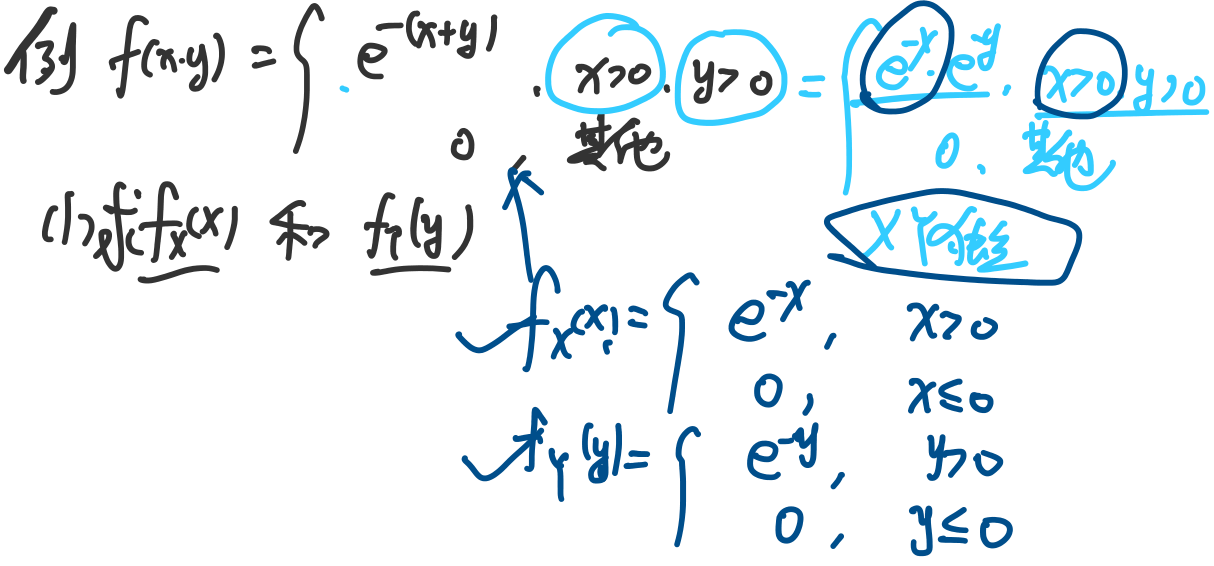 例 f(x.y) = { e^{-(x+y)} , x>0 . y>0 = { e^{-x}·e^{-y} , x>0 y>0
0 , 其他 0 、 其他
(1)求 f_X(x) 和 f_Y(y)
X Y 独立
f_X(x) = { e^{-x} , x>0
0 , x≤0
f_Y(y) = { e^{-y} , y>0
0 , y≤0